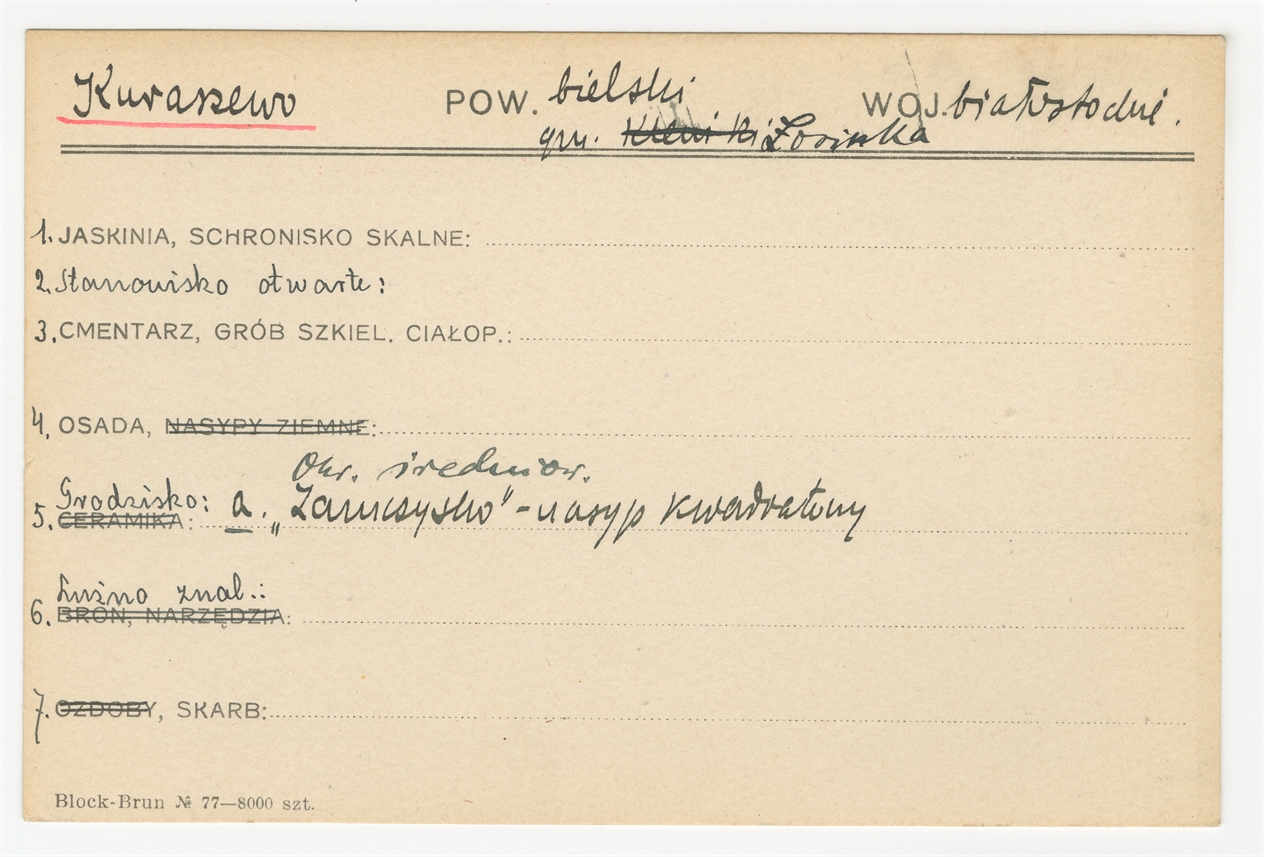 Kuraszewo POW. bielski WOJ. białostockie.
gm. Kleniki Łosinka
1. JASKINIA, SCHRONISKO SKALNE:
2. Stanowisko otwarte:
3. CMENTARZ, GRÓB SZKIEL. CIAŁOP.:
4. OSADA, NASYPY ZIEMNE:
Okr. średniow.
Grodzisko: a. „Zamczysko" - nasyp kwadratowy
5. CERAMIKA:
Luźno znal.:
6. BROŃ, NARZĘDZIA:
7. OZDOBY, SKARB:
Block-Brun № 77—8000 szt.